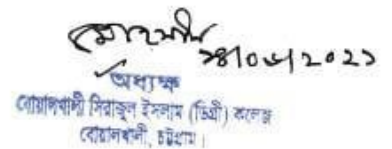 অধ্যক্ষ
বোয়ালখালী সিরাজুল ইসলাম (ডিগ্রী) কলেজ
বোয়ালখালী, চট্টগ্রাম।